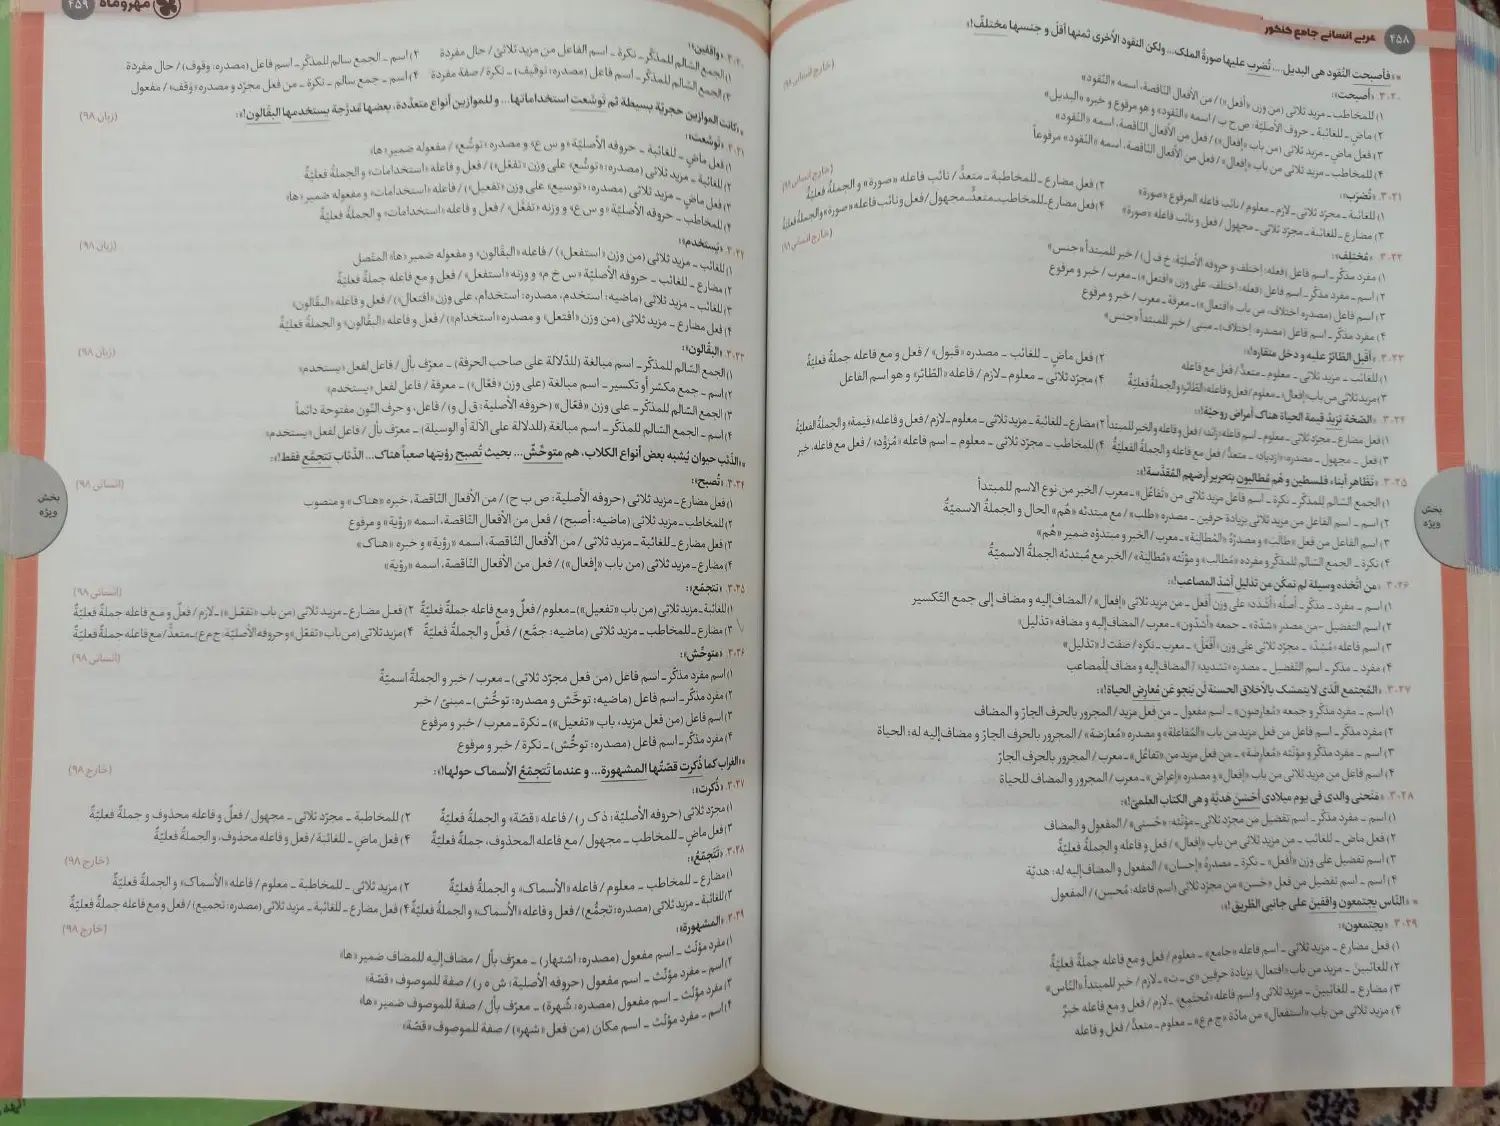 ۴۵۸ عربی انسانی جامع کنکور
«فأصبحت النّقود هی البدیل.... تُضرَب علیها صورةُ الملک... ولکن النقود الأخری ثمنها أقلّ و جنسها مختلفٌ!»:
۳۰۲۰. «أصبحت»: (خارج انسانی ۹۸)
۱) للمخاطب ـ مزید ثلاثی (من وزن «أفعل») / من الأفعال النّاقصة، اسمه «النّقود»
۲) ماضٍ ـ للغائبة ـ حروف الأصلیّة: ص ح ب / اسمه «النّقود» و هو مرفوع و خبره «البدیل»
۳) فعل ماضٍ ـ مزید ثلاثی (من باب «إفعال») / فعل من الأفعال النّاقصة، اسمه «النّقود»
۴) للمخاطب ـ مزید ثلاثی من باب «إفعال» / فعل من الأفعال النّاقصة، اسمه «النّقود» مرفوعاً
۳۰۲۱. «تُضرَب»: (خارج انسانی ۹۸)
۱) للغائبة ـ مجرّد ثلاثی ـ لازم ـ معلوم / نائب فاعله المرفوع «صورة»
۲) فعل مضارع ـ للمخاطبة ـ متعدٍّ / نائب فاعله «صورة» و الجملة فعلیّة
۳) مضارع ـ للغائبة ـ مجرّد ثلاثی ـ مجهول / فعل و نائب فاعله «صورة»
۴) فعل مضارع ـ للمخاطب ـ متعدٍّ ـ مجهول / فعل و نائب فاعله «صورة» و الجملة فعلیّة
۳۰۲۲. «مُختلف»:
۱) مفرد مذکّر ـ اسم فاعل (فعله: إختلف و حروفه الأصلیّة: خ ف ل) / خبر للمبتدأ «جنس»
۲) اسم ـ مفرد مذکّر ـ اسم فاعل (فعله: اختلف، علی وزن «افتعل») ـ معرب / خبر و مرفوع
۳) اسم فاعل (مصدره اختلاف، من باب «افتعال») ـ معرفة ـ معرب / خبر و مرفوع
۴) مفرد مذکّر ـ اسم فاعل (مصدره: اختلاف) ـ مبنی / خبر للمبتدأ «جنس»
۳۰۲۳. «أقبلَ الطّائرُ علیه و دخل منقاره!»:
۱) للغائب ـ مزید ثلاثی ـ معلوم ـ متعدٍّ / فعل مع فاعله
۲) فعل ماضٍ ـ للغائب ـ مصدره «قبول» / فعل و مع فاعله جملةٌ فعلیّةٌ
۳) مزید ثلاثی من باب «إفعال» ـ معلوم / فعل و فاعله «الطّائر» و الجملةُ فعلیّةٌ
۴) مجرّد ثلاثی ـ معلوم ـ لازم / فاعله «الطّائر» و هو اسم الفاعل
۳۰۲۴. «الصّحّة تزیدُ قیمة الحیاة هناک أمراض روحیّة!»:
۱) فعل مضارع ـ مجرّد ثلاثی ـ معلوم ـ اسم فاعله: «زائد» / فعل و فاعله و الخبر للمبتدأ
۲) مضارع ـ للغائبة ـ مزید ثلاثی ـ معلوم ـ لازم / فعل و فاعله «قیمة» و الجملةُ الفعلیّةُ
۳) فعل ـ مجهول ـ مصدره: «ازدیاد» ـ متعدٍّ / فعل مع فاعله و الجملةُ الفعلیّةُ
۴) للمخاطب ـ مجرّد ثلاثی ـ معلوم ـ اسم فاعله «مُزَوِّد» / فعل مع فاعله، خبر
۳۰۲۵. «تظاهر أبناء فلسطین و هُم مُطالبون بتحریر أرضهم المُقدّسة!»:
۱) الجمع السّالم للمذکّر ـ نکرة ـ اسم فاعل مزید ثلاثی من «تَفاعُل» ـ معرب / الخبر من نوع الاسم للمبتدأ
۲) اسم ـ اسم الفاعل من مزید ثلاثی بزیادة حرفین ـ مصدره «طلب» / مع مبتدئه «هُم» الحال و الجملة الاسمیّةُ
۳) اسم الفاعل من فعل «طالب» و مصدرُهُ «المُطالبة» ـ معرب / الخبر و مبتدؤه ضمیر «هُم»
۴) نکرة ـ الجمع السّالم للمذکّر و مفرده «مُطالب» و مؤنّثه «مُطالبة» / الخبر مع مُبتدئه الجملةُ الاسمیّةُ
۳۰۲۶. «من اتّخذه وسیلة لم تمکّن من تذلیل أشدّ المصاعب!»:
۱) اسم ـ مفرد ـ مذکّر ـ أصلُه «أشدَد» علی وزن أفعل ـ من مزید ثلاثی «إفعال» / المضاف‌إلیه و مضاف إلی جمع التّکسیر
۲) اسم التفضیل ـ من مصدر «شدّة» ـ جمعه «أشدّون» ـ معرب / المضاف‌إلیه و مضافه «تذلیل»
۳) اسم فاعله «مُشِدّ» ـ مجرّد ثلاثی علی وزن «أفعَل» ـ معرب ـ نکره / صفت لـ «تذلیل»
۴) مفرد ـ مذکر ـ اسم التّفضیل ـ مصدره «تشدید» / المضاف‌إلیه و مضاف لِلمصاعب
۳۰۲۷. «المُجتمع الّذی لا یتمسّک بالأخلاق الحسنة لَن یَنجو مَن مُعارِضِ الحیاة!»:
۱) اسم ـ مفرد مذکّر و جمعه «مُعارضون» ـ اسم مفعول ـ من فعل مزید / المجرور بالحرف الجارّ و المضاف
۲) مفرد مذکّر ـ اسم فاعل من فعل مزید من باب «المُفاعَلة» و مصدره «مُعارضة» / المجرور بالحرف الجارّ و مضاف‌إلیه له: الحیاة
۳) اسم ـ مفرد مذکّر و مؤنّثه «مُعارضة» ـ من فعل مزید من «تفاعُل» ـ معرب / المجرور بالحرف الجارّ
۴) اسم فاعل من مزید ثلاثی من باب «إفعال» و مصدره «إعراض» ـ معرب / المجرور و المضاف للحیاة
۳۰۲۸. «مَنَحنی والدی فی یوم میلادی أحْسَنَ هَدیَّة و هی الکتاب العلمیّ!»:
۱) اسم ـ مفرد مذکّر ـ اسم تفضیل من مجرّد ثلاثی ـ مؤنّثه: «حُسنی» / المفعول و المضاف
۲) فعل ماضٍ ـ للغائب ـ من مزید ثلاثی من باب «إفعال» / فعل و فاعله و الجملةُ فعلیّةٌ
۳) اسم تفضیل علی وزن «أفعل» ـ نکرة ـ مصدرهُ «إحسان» / المفعول و المضاف‌إلیه له: هدیّة
۴) اسم ـ اسم تفضیل من فعل «حَسن» من مجرّد ثلاثی (اسم فاعله: مُحسِن) / المفعول
«النّاس یجتمعون واقفین علی جانبی الطّریق!»:
۳۰۲۹. «یجتمعون»:
۱) فعل مضارع ـ مزید ثلاثی ـ اسم فاعله «جامع» ـ معلوم / فعل و مع فاعله جملةٌ فعلیّةٌ
۲) للغائبین ـ مزید من باب «افتعال» بزیادة حرفین «ی ـ ت» ـ لازم / خبر للمبتدأ «النّاس»
۳) مضارع ـ للغائبین ـ مزید ثلاثی و اسم فاعله «مُجتَمِع» ـ لازم / فعل و مع فاعله خبرٌ
۴) مزید ثلاثی من باب «استفعال» من مادّة «ج م ع» ـ معلوم ـ متعدٍّ / فعل و فاعله
بخش ویژه
مهروماه ۴۵۹
۳۰۳۰. «واقفین»:
۱) الجمع السّالم للمذکّر ـ نکرة ـ اسم الفاعل من مزید ثلاثیّ / حال مفردة
۲) اسم ـ الجمع سالم للمذکّر ـ اسم فاعل (مصدره: وقوف) / حال مفردة
۳) الجمع السّالم للمذکّر ـ اسم فاعل (مصدره: توقیف) ـ نکرة / صفة مفردة
۴) اسم ـ جمع سالم ـ نکرة ـ من فعل مجرّد و مصدره «وَقف» / مفعول
«کانت الموازین حجریّة بسیطة ثم توسّعت استخداماتها... و للموازین أنواع متعدّدة، بعضها مُدرّجة یستخدمها البقّالون!»:
۳۰۳۱. «توسّعت»: (زبان ۹۸)
۱) فعل ماضٍ ـ للغائبة ـ حروفه الأصلیّة «و س ع» و مصدره «توسّع» / مفعوله ضمیر «ها»
۲) للغائبة ـ مزید ثلاثی (مصدره: «توسّع» علی وزن «تفعّل») / فعل و فاعله «استخدامات» و الجملة فعلیّةٌ
۳) فعل ماضٍ ـ مزید ثلاثی (مصدره: «توسیع» علی وزن «تفعیل») / فاعله «استخدامات» و مفعوله ضمیر «ها»
۴) للمخاطب ـ حروفه الأصلیّة «و س ع» و وزنه «تفعّل» / فعل و فاعله «استخدامات» و الجملةُ فعلیّةٌ
«یستخدم»: (زبان ۹۸)
۱) للغائب ـ مزید ثلاثی (من وزن «استفعل») / فاعله «البقّالون» و مفعوله ضمیر «ها» المتّصل
۲) مضارع ـ للغائب ـ حروفه الأصلیّة «س خ م» و وزنه «استفعل» / فعل و مع فاعله جملةٌ فعلیّةٌ
۳) للغائب ـ مزید ثلاثی (ماضیه: استخدم، مصدره: استخدام، علی وزن «افتعال») / فعل و فاعله «البقّالون»
۴) فعل مضارع ـ مزید ثلاثی (من وزن «افتعل» و مصدره «استخدام») / فعل و فاعله «البقّالون» و الجملةُ فعلیّةٌ
۳۰۳۳. «البقّالون»: (زبان ۹۸)
۱) الجمع السّالم للمذکّر ـ اسم مبالغة (للدّلالة علی صاحب الحرفة) ـ معرّف بأل / فاعل لفعل «یستخدم»
۲) اسم ـ جمع مکسّر أو تکسیر ـ اسم مبالغة (علی وزن «فعّال») ـ معرفة / فاعل لفعل «یستخدم»
۳) الجمع السّالم للمذکّر ـ علی وزن «فعّال» (حروفه الأصلیة: ق ل و) / فاعل، و حرف النّون مفتوحة دائماً
۴) اسم ـ الجمع السّالم للمذکّر ـ اسم مبالغة (للدلالة علی الآلة أو الوسیلة) ـ معرّف بأل / فاعل لفعل «یستخدم»
«الذّئب حیوان یُشبه بعض أنواع الکلاب، هم متوحّشٌ... بحیث تُصبح رؤیتها صعباً هناک... الذّئاب تتجمّع فقط!»:
۳۰۳۴. «تُصبح»: (انسانی ۹۸)
۱) فعل مضارع ـ مزید ثلاثی (حروفه الأصلیة: ص ب ح) / من الأفعال النّاقصة، خبره «هناک» و منصوب
۲) للمخاطب ـ مزید ثلاثی (ماضیه: أصبح) / فعل من الأفعال النّاقصة، اسمه «رؤیة» و مرفوع
۳) فعل مضارع ـ للغائبة ـ مزید ثلاثی / من الأفعال النّاقصة، اسمه «رؤیة» و خبره «هناک»
۴) مضارع ـ مزید ثلاثی (من باب «إفعال») / فعل من الأفعال النّاقصة، اسمه «رؤیة»
۳۰۳۵. «تتجمّع»: (انسانی ۹۸)
۱) للغائبة ـ مزید ثلاثی (من باب «تفعیل») ـ معلوم / فعلٌ و مع فاعله جملةٌ فعلیّةٌ
۲) فعل مضارع ـ مزید ثلاثی (من باب «تفعّل») ـ لازم / فعلٌ و مع فاعله جملةٌ فعلیّةٌ
۳) مضارع ـ للمخاطب ـ مزید ثلاثی (ماضیه: جمَّع) / فعلٌ و الجملةُ فعلیّةٌ
۴) مزید ثلاثی (من باب «تفعّل» و حروفه الأصلیّة: ج م ع) ـ متعدٍّ / مع فاعله جملةٌ فعلیّةٌ
۳۰۳۶. «متوحّش»: (انسانی ۹۸)
۱) اسم مفرد مذکّر ـ اسم فاعل (من فعل مجرّد ثلاثی) ـ معرب / خبر و الجملةُ اسمیّةٌ
۲) مفرد مذکّر ـ اسم فاعل (ماضیه: توحّش و مصدره: توحُّش) ـ مبنیّ / خبر
۳) اسم فاعل (من فعل مزید، باب «تفعیل») ـ نکرة ـ معرب / خبر و مرفوع
۴) مفرد مذکّر ـ اسم فاعل (مصدره: توحُّش) ـ نکرة / خبر و مرفوع
«الغراب کما ذُکرت قصّتها المشهورة... و عندما تَتجمّعُ الأسماک حولها!»:
۳۰۳۷. «ذُکرت»: (خارج ۹۸)
۱) مجرّد ثلاثی (حروفه الأصلیّة: ذ ک ر) / فاعله «قصّة» و الجملةُ فعلیّةٌ
۲) للمخاطبة ـ مجرّد ثلاثی ـ مجهول / فعلٌ و فاعله محذوف و جملةٌ فعلیّةٌ
۳) فعل ماضٍ ـ للمخاطب ـ مجهول / مع فاعله المحذوف، جملةٌ فعلیّةٌ
۴) فعل ماضٍ ـ للغائبة / فعل و فاعله محذوف، و الجملةُ فعلیّةٌ
۳۰۳۸. «تتجمّعُ»: (خارج ۹۸)
۱) مضارع ـ للمخاطب ـ معلوم / فاعله «الأسماک» و الجملةُ فعلیّةٌ
۲) مزید ثلاثی ـ للمخاطبة ـ معلوم / فاعله «الأسماک» و الجملةُ فعلیّةٌ
۳) للغائبة ـ مزید ثلاثی (مصدره: تجمُّع) / فعل و فاعله «الأسماک» و الجملةُ فعلیّةٌ
۴) فعل مضارع ـ للغائبة ـ مزید ثلاثی (مصدره: تجمیع) / فعل و مع فاعله جملةٌ فعلیّةٌ
۳۰۳۹. «المشهورة»: (خارج ۹۸)
۱) مفرد مؤنّث ـ اسم مفعول (مصدره: اشتهار) ـ معرّف بأل / مضاف‌إلیه للمضاف ضمیر «ها»
۲) اسم ـ مفرد مؤنّث ـ اسم مفعول (حروفه الأصلیة: ش ه ر) / صفة للموصوف «قصّة»
۳) مفرد مؤنّث ـ اسم مفعول (مصدره: شُهرة) ـ معرّف بأل / صفة للموصوف ضمیر «ها»
۴) اسم ـ مفرد مؤنّث ـ اسم مکان (من فعل «شهر») / صفة للموصوف «قصّة»
بخش ویژه